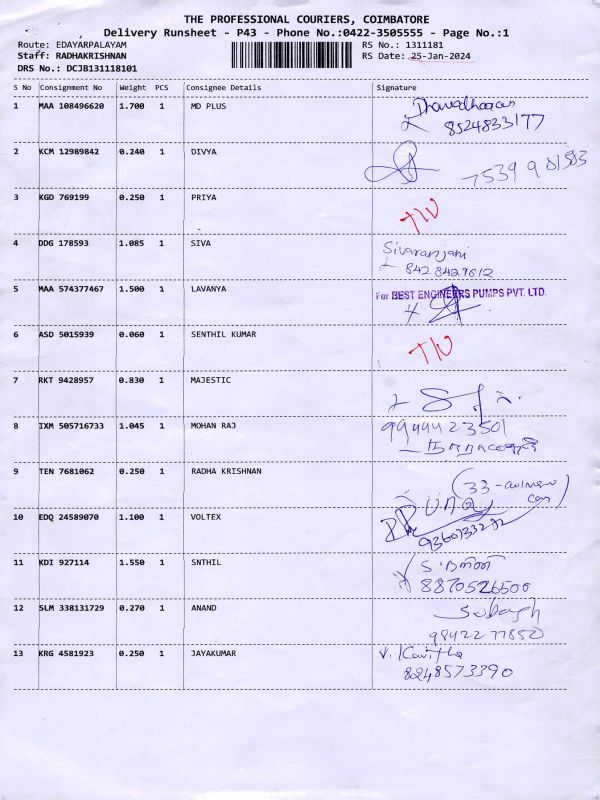 THE PROFESSIONAL COURIERS, COIMBATORE
Delivery Runsheet - P43 - Phone No.:0422-3505555 - Page No.:1
Route: EDAYARPALAYAM RS No.: 1311181
Staff: RADHAKRISHNAN RS Date: 25-Jan-2024
DRS No.: DCJB131118101
S No Consignment No Weight PCS Consignee Details Signature
1 MAA 108496620 1.700 1 MD PLUS Dhanadharan
8524833177
2 KCM 12989842 0.240 1 DIVYA
3 KGD 769199 0.250 1 PRIYA T/U
4 DDG 178593 1.085 1 SIVA Sivaranjani
8428427612
5 MAA 574377467 1.500 1 LAVANYA For BEST ENGINEERS PUMPS PVT. LTD.
6 ASD 5015939 0.060 1 SENTHIL KUMAR T/U
7 RKT 9428957 0.830 1 MAJESTIC
8 IXM 505716733 1.045 1 MOHAN RAJ 9944423501
9 TEN 7681062 0.250 1 RADHA KRISHNAN
10 EDQ 24589070 1.100 1 VOLTEX
9360133292
11 KDI 927114 1.550 1 SNTHIL
8870526500
12 SLM 338131729 0.270 1 ANAND
9842277850
13 KRG 4581923 0.250 1 JAYAKUMAR V. Kavitha
8248573390